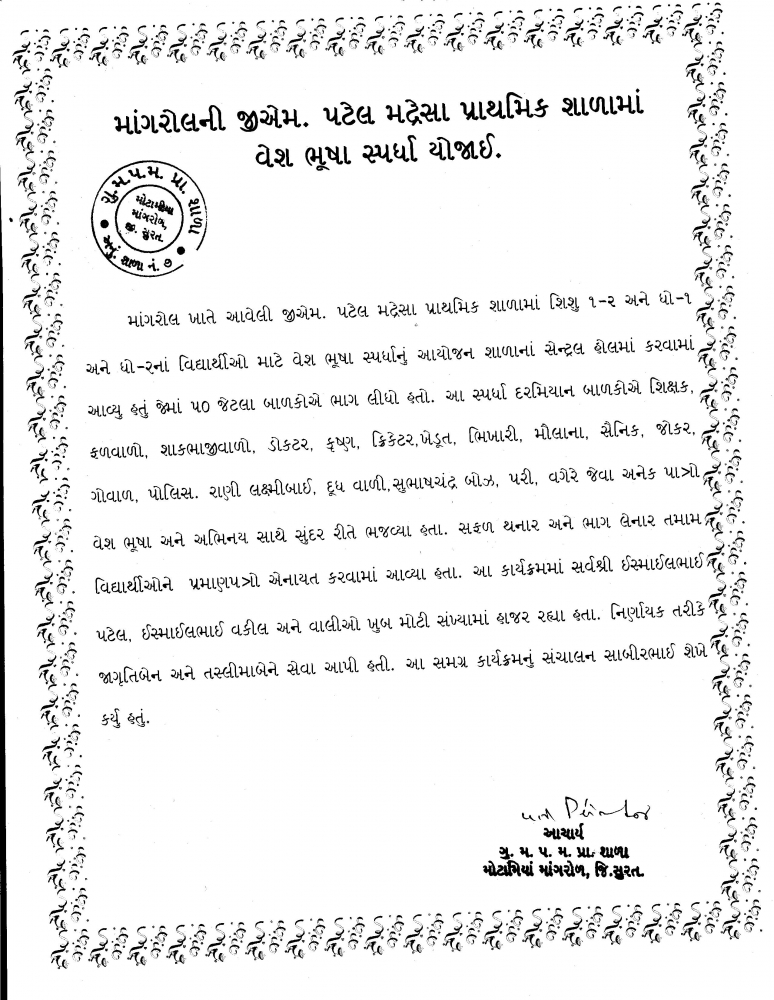 માંગરોલની જીએમ. પટેલ મદ્રેસા પ્રાથમિક શાળામાં
વેશ ભૂષા સ્પર્ધા યોજાઈ.
ગુ. મ. પ. મ. પ્રા. શાળા
મોટામીયા
માંગરોળ,
જી. સુરત.
અનુ. શાળા નં. ૭
માંગરોલ ખાતે આવેલી જીએમ. પટેલ મદ્રેસા પ્રાથમિક શાળામાં શિશુ ૧-૨ અને ધો-૧
અને ધો-૨નાં વિદ્યાર્થીઓ માટે વેશ ભૂષા સ્પર્ધાનું આયોજન શાળાનાં સેન્ટ્રલ હોલમાં કરવામાં
આવ્યુ હતું જેમાં ૫૦ જેટલા બાળકોએ ભાગ લીધો હતો. આ સ્પર્ધા દરમિયાન બાળકોએ શિક્ષક,
ફળવાળો, શાકભાજીવાળો, ડોકટર, કૃષ્ણ, ક્રિકેટર,ખેડૂત, ભિખારી, મૌલાના, સૈનિક, જોકર,
ગોવાળ, પોલિસ. રાણી લક્ષ્મીબાઈ, દૂધ વાળી,સુભાષચંદ્ર બોઝ, પરી, વગેરે જેવા અનેક પાત્રો
વેશ ભૂષા અને અભિનય સાથે સુંદર રીતે ભજવ્યા હતા. સફળ થનાર અને ભાગ લેનાર તમામ
વિદ્યાર્થીઓને પ્રમાણપત્રો એનાયત કરવામાં આવ્યા હતા. આ કાર્યક્રમમાં સર્વશ્રી ઈસ્માઈલભાઈ
પટેલ, ઈસ્માઈલભાઈ વકીલ અને વાલીઓ ખુબ મોટી સંખ્યામાં હાજર રહ્યા હતા. નિર્ણાયક તરીકે
જાગૃતિબેન અને તસ્લીમાબેને સેવા આપી હતી. આ સમગ્ર કાર્યક્રમનું સંચાલન સાબીરભાઈ શેખે
કર્યુ હતું.
આચાર્ય
ગુ. મ. પ. મ. પ્રા. શાળા
મોટામિયાં માંગરોળ, જિ.સુરત.